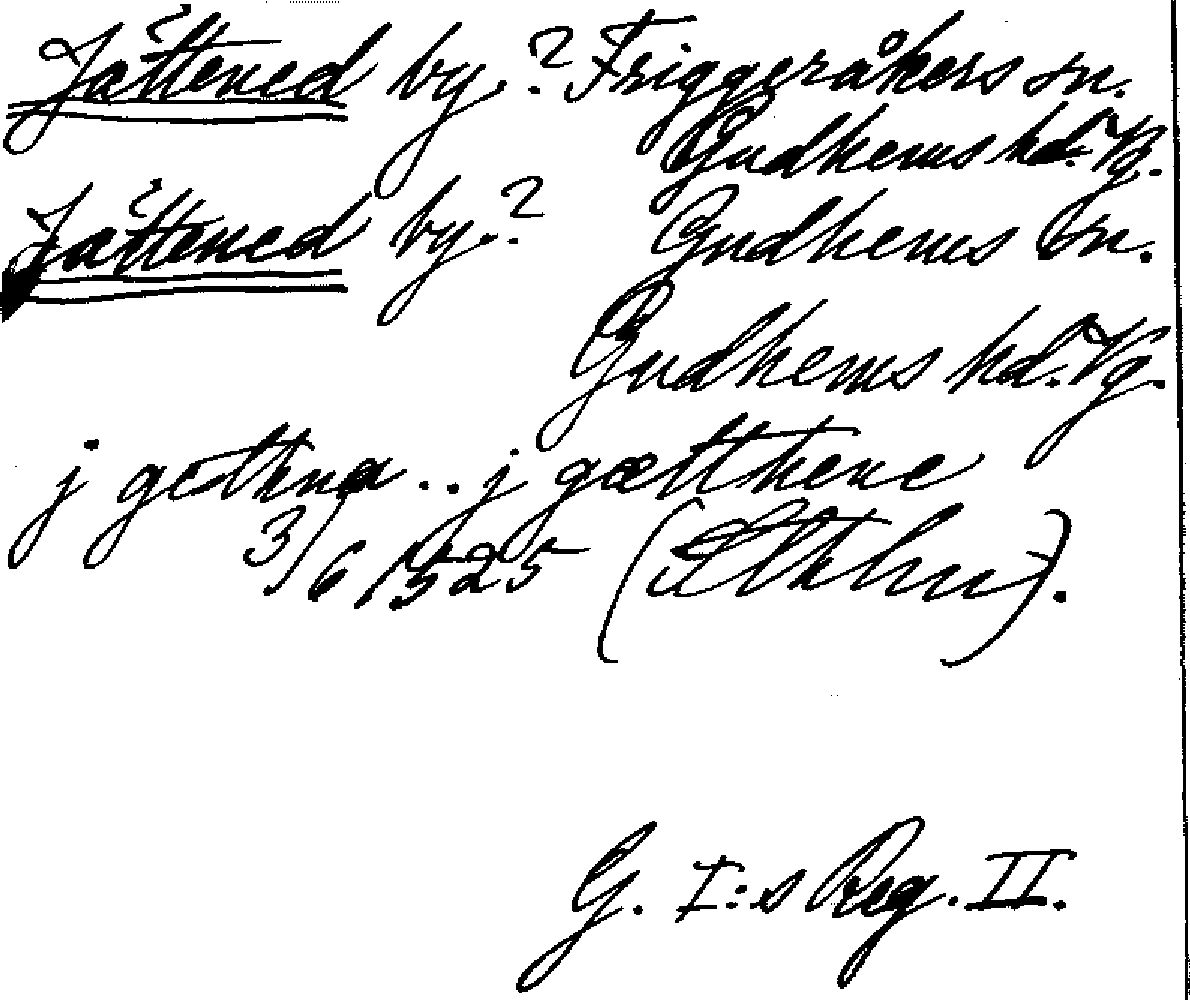 Jättened by.? Friggeråkers sn.
Gudhems hd. Vg.
Jättened by.? Gudhems sn.
Gudhems hd. Vg.
j gethna .. j gætthene
3/6 1525 (
G. I:s Reg. II.